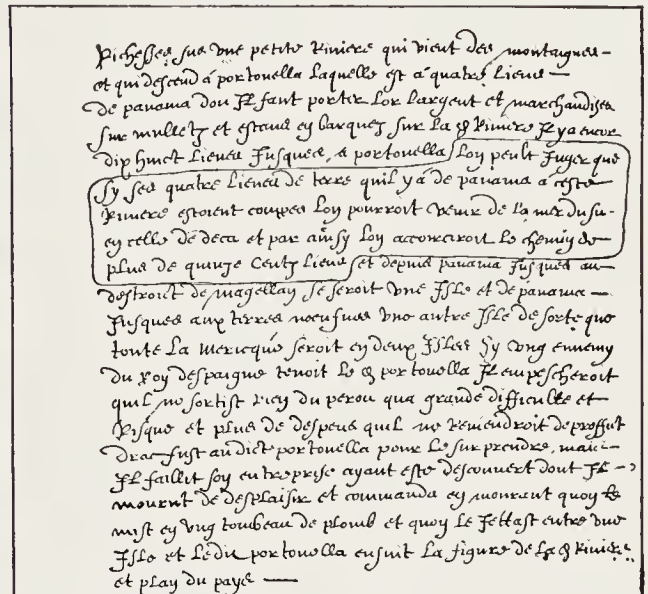 Richesses sue vne petite Riuiere qui vient des montaignes
et qui descend a portouella laquelle est a quatre lieues
de panama dou Il fault porter Lor Largent et marchandises
sur mulletz et estans en barques sur La Riuiere Il y a encor
dix huict Lieues Jusques, a portouella Lon peult Juger que
sy ses quatre Lieues de terre quil y a de panama a ceste
Riuiere estoient coupes Lon pourroit venir de la mer du su
en celle de deca et par ainsy Lon accorciroit le chemin de
plus de quinze Centz Lieues et depuis panama Jusques au
destroit de magellan se seroit vne Isle et de panama
Jusques aux terres neufues vne autre Isle de sorte que
toute La mericque seroit en deux Isles sy vng ennemy
du Roy despaigne tenoit le portouella Il empescheroit
quil ne sortist rien du perou qua grande difficulte et
Risque et plus de despens quil ne Reuiendroit de proffit
drac fust au dict portouella pour Le surprendre, mais
Il faillit son entreprise ayant este descouuert dont Il
mourut de desplaisir et commanda en mourant quon le
mist en vng tombeau de plomb et quon Le Jettast entre vne
Isle et Ledit portouella ensuit La figure de La Riuiere
et plan du pays